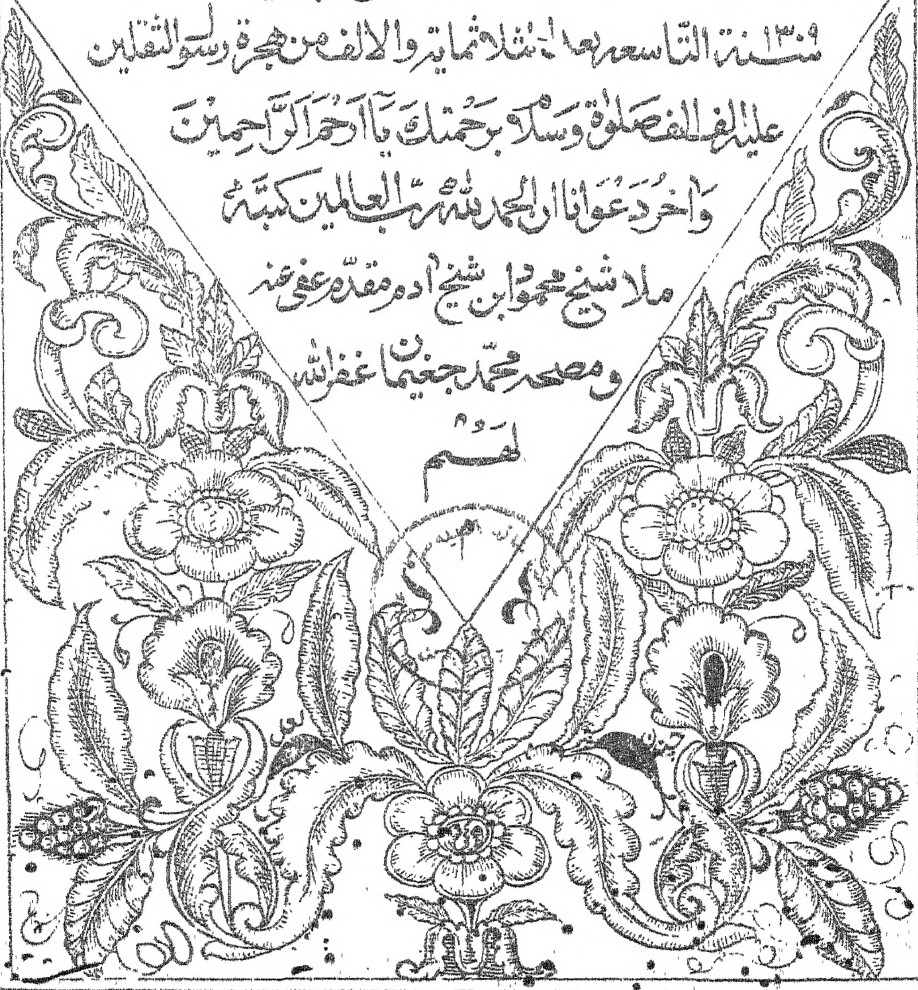 سنة التاسعة بعد الثلاثمایة والالف من هجرة رسول الثقلین
علیه الف الف صلوة وسلام برحمتك یا ارحم الراحمین
وَاخر دَعْوانا ان الحمد لله ربّ العالمین كتبهٔ
ملا شیخ محمود ابن شیخ ادم عفی عنه
ومصححه محمّد غفر الله
لهم